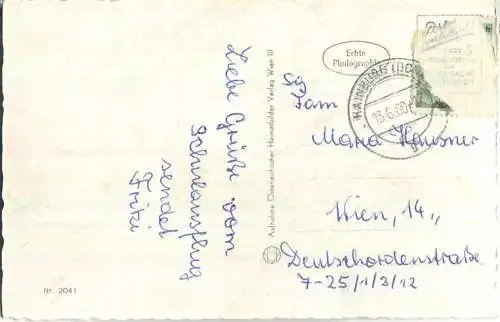 Liebe Grüße vom
Schulausflug
sendet
Fritzi
Nr. 2041
Aufnahme Österreichischer Heimatbilder Verlag Wien III
Echte
Photographie
HAINBURG (DO
18.6.60
Fam
Maria Hausner
Wien, 14,,
Deutschordenstraße
7-25/1/3/12